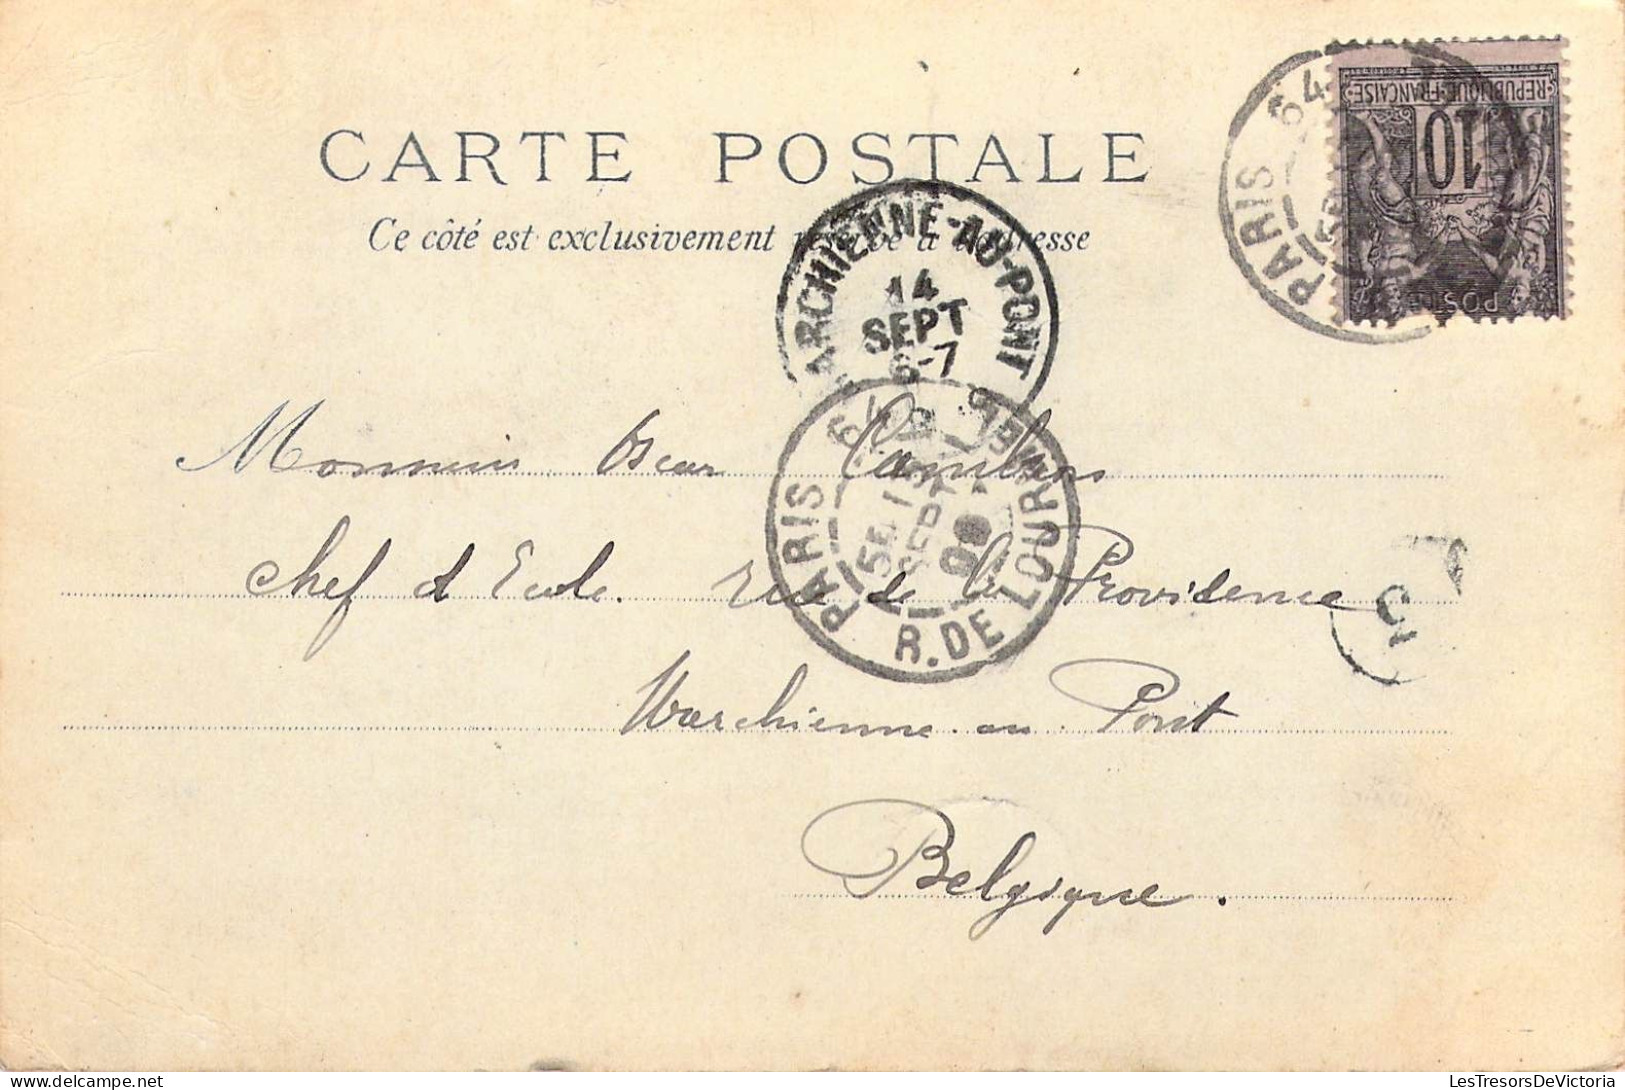 CARTE POSTALE
Ce côté est exclusivement réservé à l'adresse
REPUBLIQUE FRANÇAISE
10
POSTE
PARIS 64
MARCHIENNE-AU-PONT
14
SEPT
6-7
PARIS 64
R. DE LOURMEL
5E/13
SEPT
99
Monsieur Oscar Cambier
Chef d'Ecole. rue de la Providence
Marchienne au Pont
Belgique.
LesTresorsDeVictoria